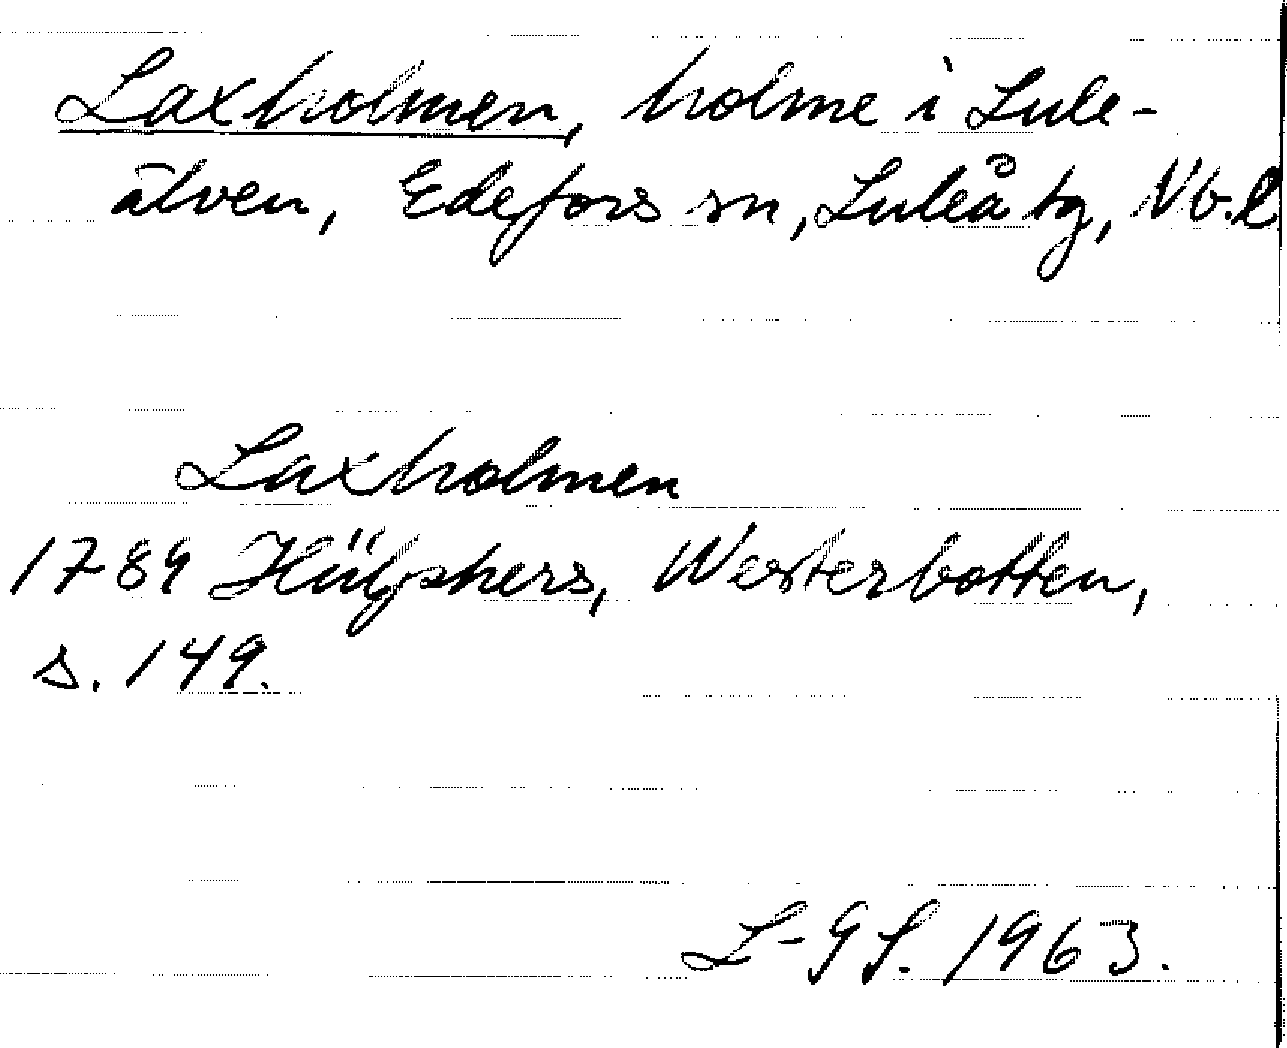 Laxholmen, holme i Lule-
älven, Edefors sn, Luleå tg, Nb. l
Laxholmen
1789 Hülphers, Westerbotten,
s. 149.
L-GS. 1963.